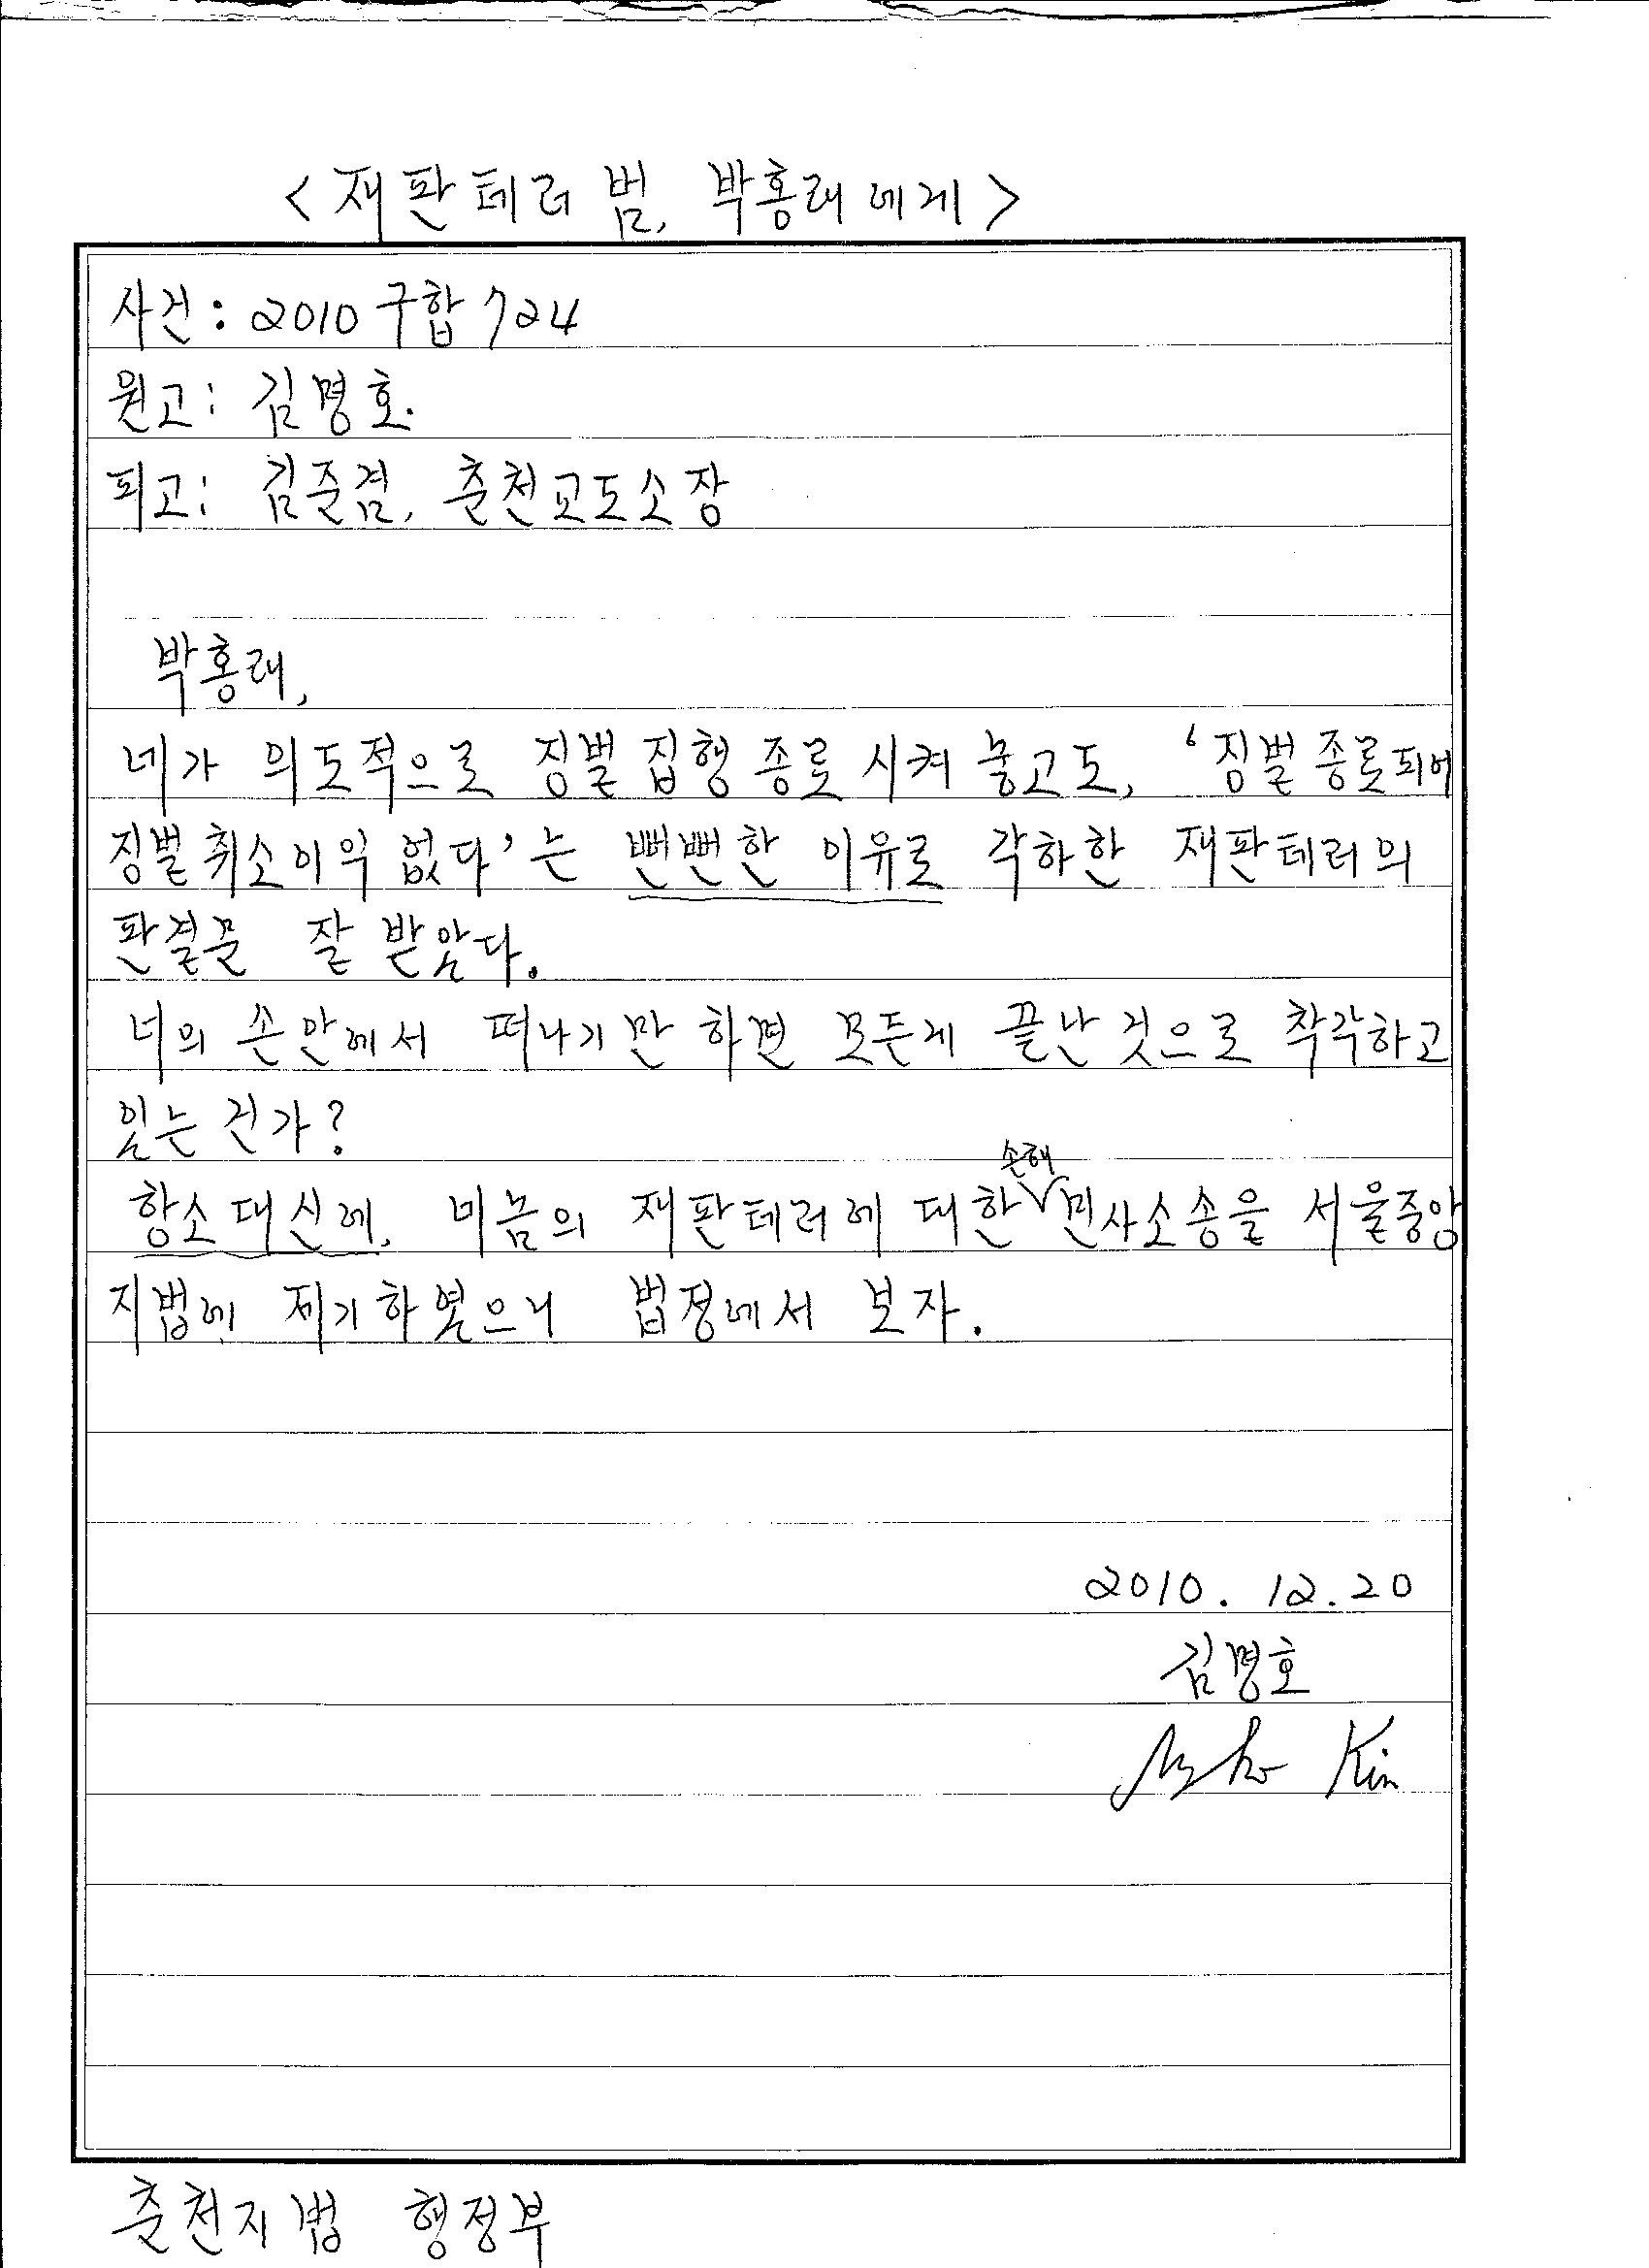 <재판테러범, 박홍래에게>
사건: 2010구합724
원고: 김명호.
피고: 김준겸, 춘천교도소장
박홍래,
네가 의도적으로 징벌집행종료시켜 놓고도, '징벌종료되어
징벌취소이익 없다'는 뻔뻔한 이유로 각하한 재판테러의
판결문 잘 받았다.
너의 손안에서 떠나기만 하면 모든게 끝난 것으로 착각하고
있는 건가?
손해
항소대신에, 네놈의 재판테러에 대한 민사소송을 서울중앙
지법에 제기하였으니 법정에서 보자.
2010. 12. 20
김명호
Kim
춘천지법 행정부